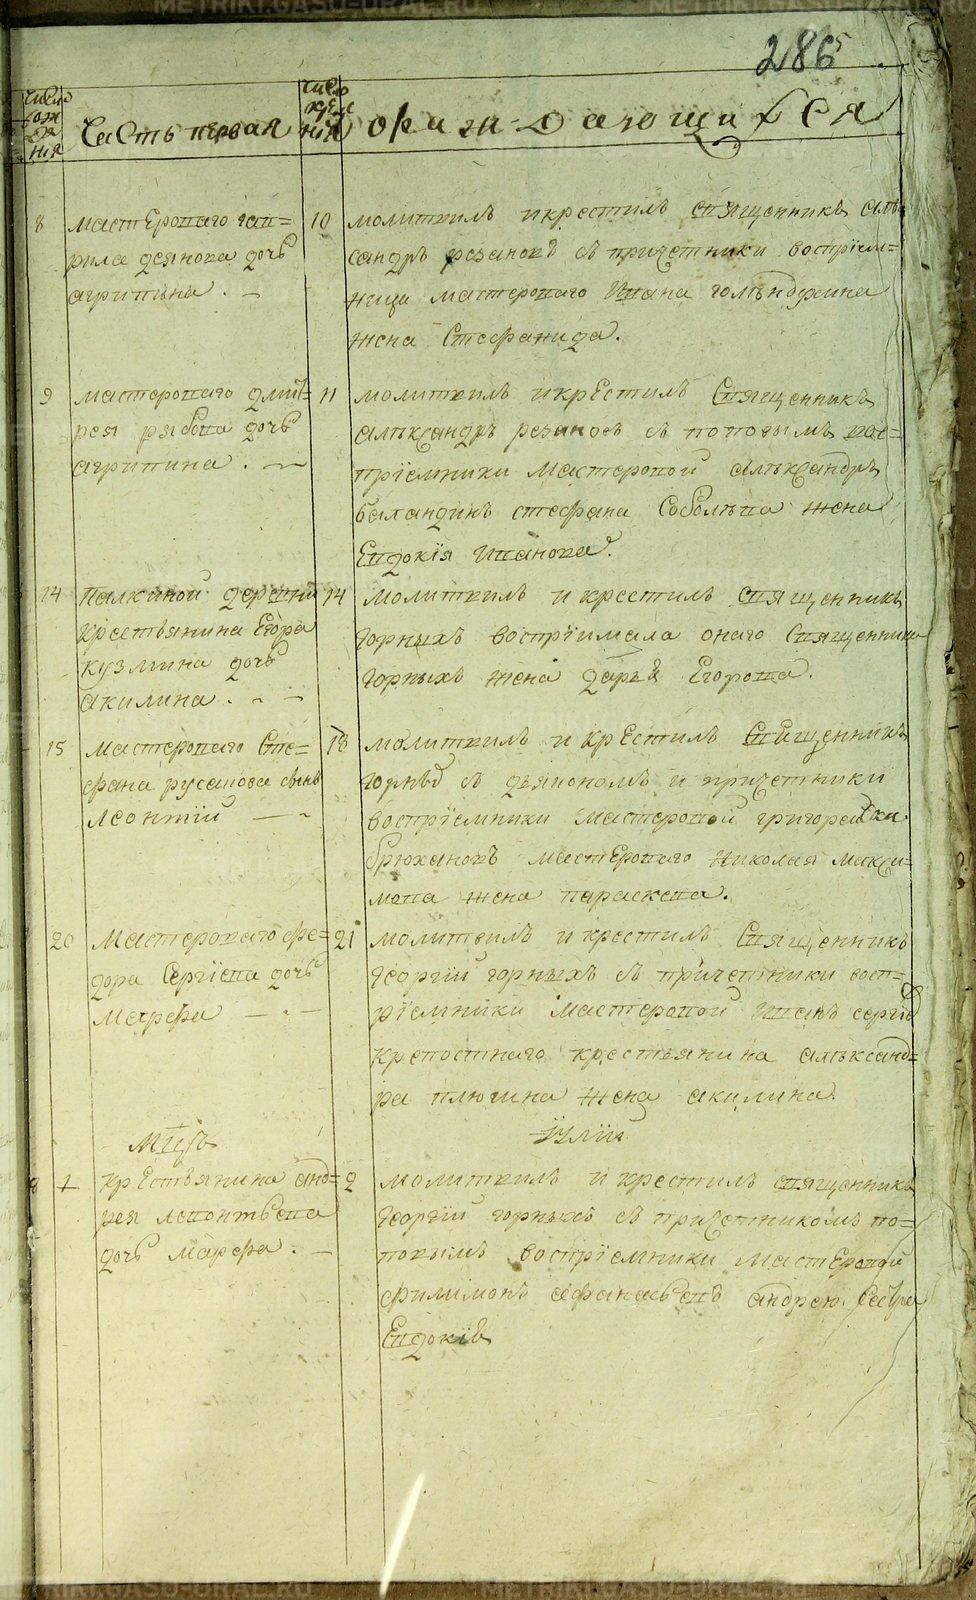 286
число рож де нія
Часть первая
число кре ще нія
о раждающихся
8 мастероваго гав=
рила деянова дочь
агрипина
10 молитвилъ икрестилъ священникъ алѣ
сандръ резановъ съ причетники воспріем=
ница мастероваго Ивана
жена Стефанида.
9 мастероваго дмит=
рея рябова дочь
агрипина.
11 молитвилъ икрестилъ Священникъ
алѣксандръ резановъ съ поповымъ вос=
пріемники мастеровой алѣксандръ
баландинъ стефана Соболева жена
Евдокія Иванова.
14 Палкиной деревни
крестьянина Егора
кузмина дочь
акилина.
14 молитвилъ и крестилъ священникъ
горныхъ воспріимала онаго Священника
горныхъ жена дарья Егорова.
15 мастероваго Сте=
фана русанова сынъ
леонтіи
18 молитвилъ и крестилъ Священникъ
съ дьякономъ и причетники
воспріемники мастеровой григореи
брюхановъ мастероваго Николая макси=
мова жена параскева.
20 Мастероваго фе=
дора Сергіева дочь
марфа
21 молитвилъ и крестилъ Священникъ
Георгіи горныхъ съ причетники восп=
ріемники мастеровой Иванъ
крепостнаго крестьянина алѣксанд=
ра плюшна жена акилина.
Мцъ
іуліи
1 крестьянина анд=
рея леонтьева
дочь марфа.
2 молитвилъ и крестилъ священникъ
Георгіи горныхъ съ причетникомъ по=
повымъ воспріемники мастеровой
филимонъ афанасьевъ андрею Сестра
Евдокія